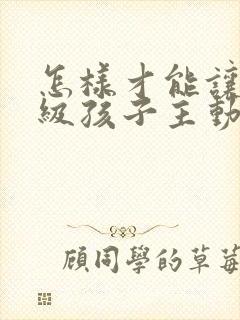 怎樣才能讓
級孩子主動
顧同學的草莓